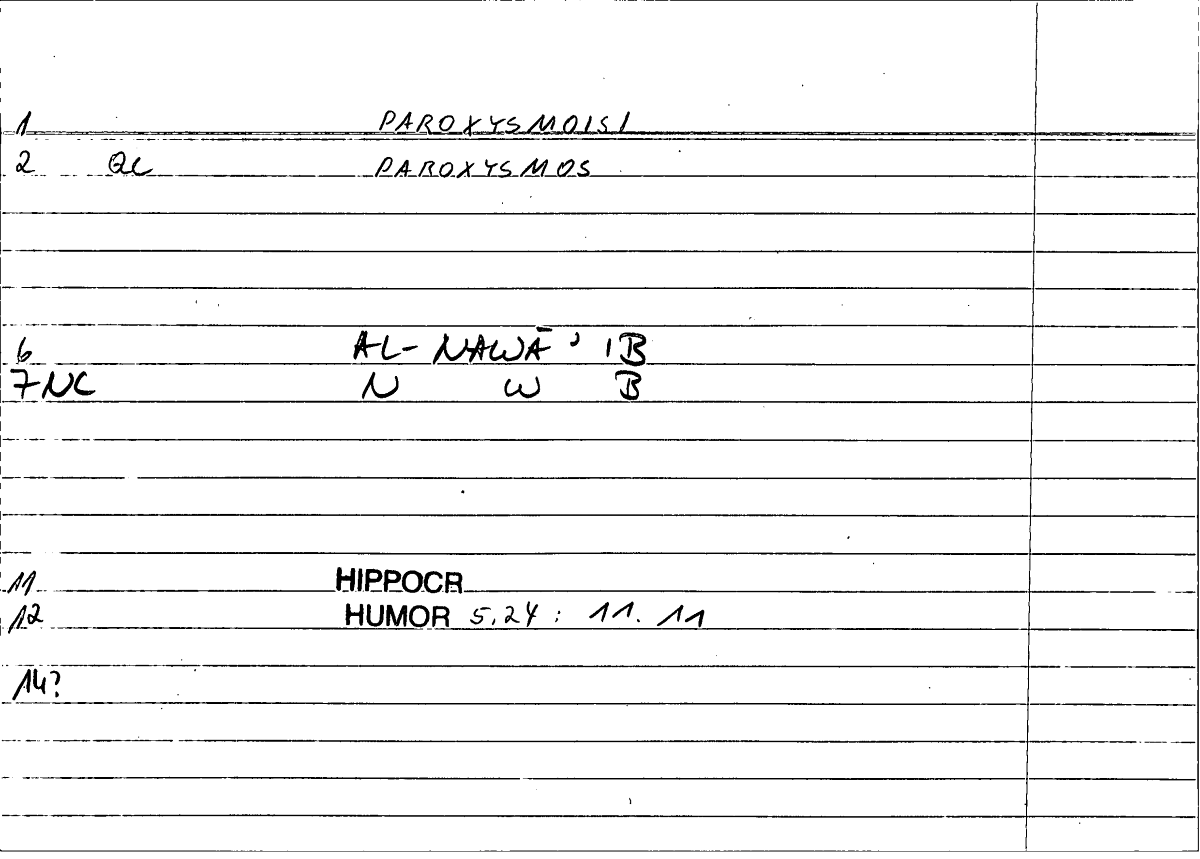 1 PAROXYSMOISI
2 QC PAROXYSMOS
6 AL-NAWĀʾIB
7 NC N W B
11 HIPPOCR
12 HUMOR 5,24 : 11. 11
14?